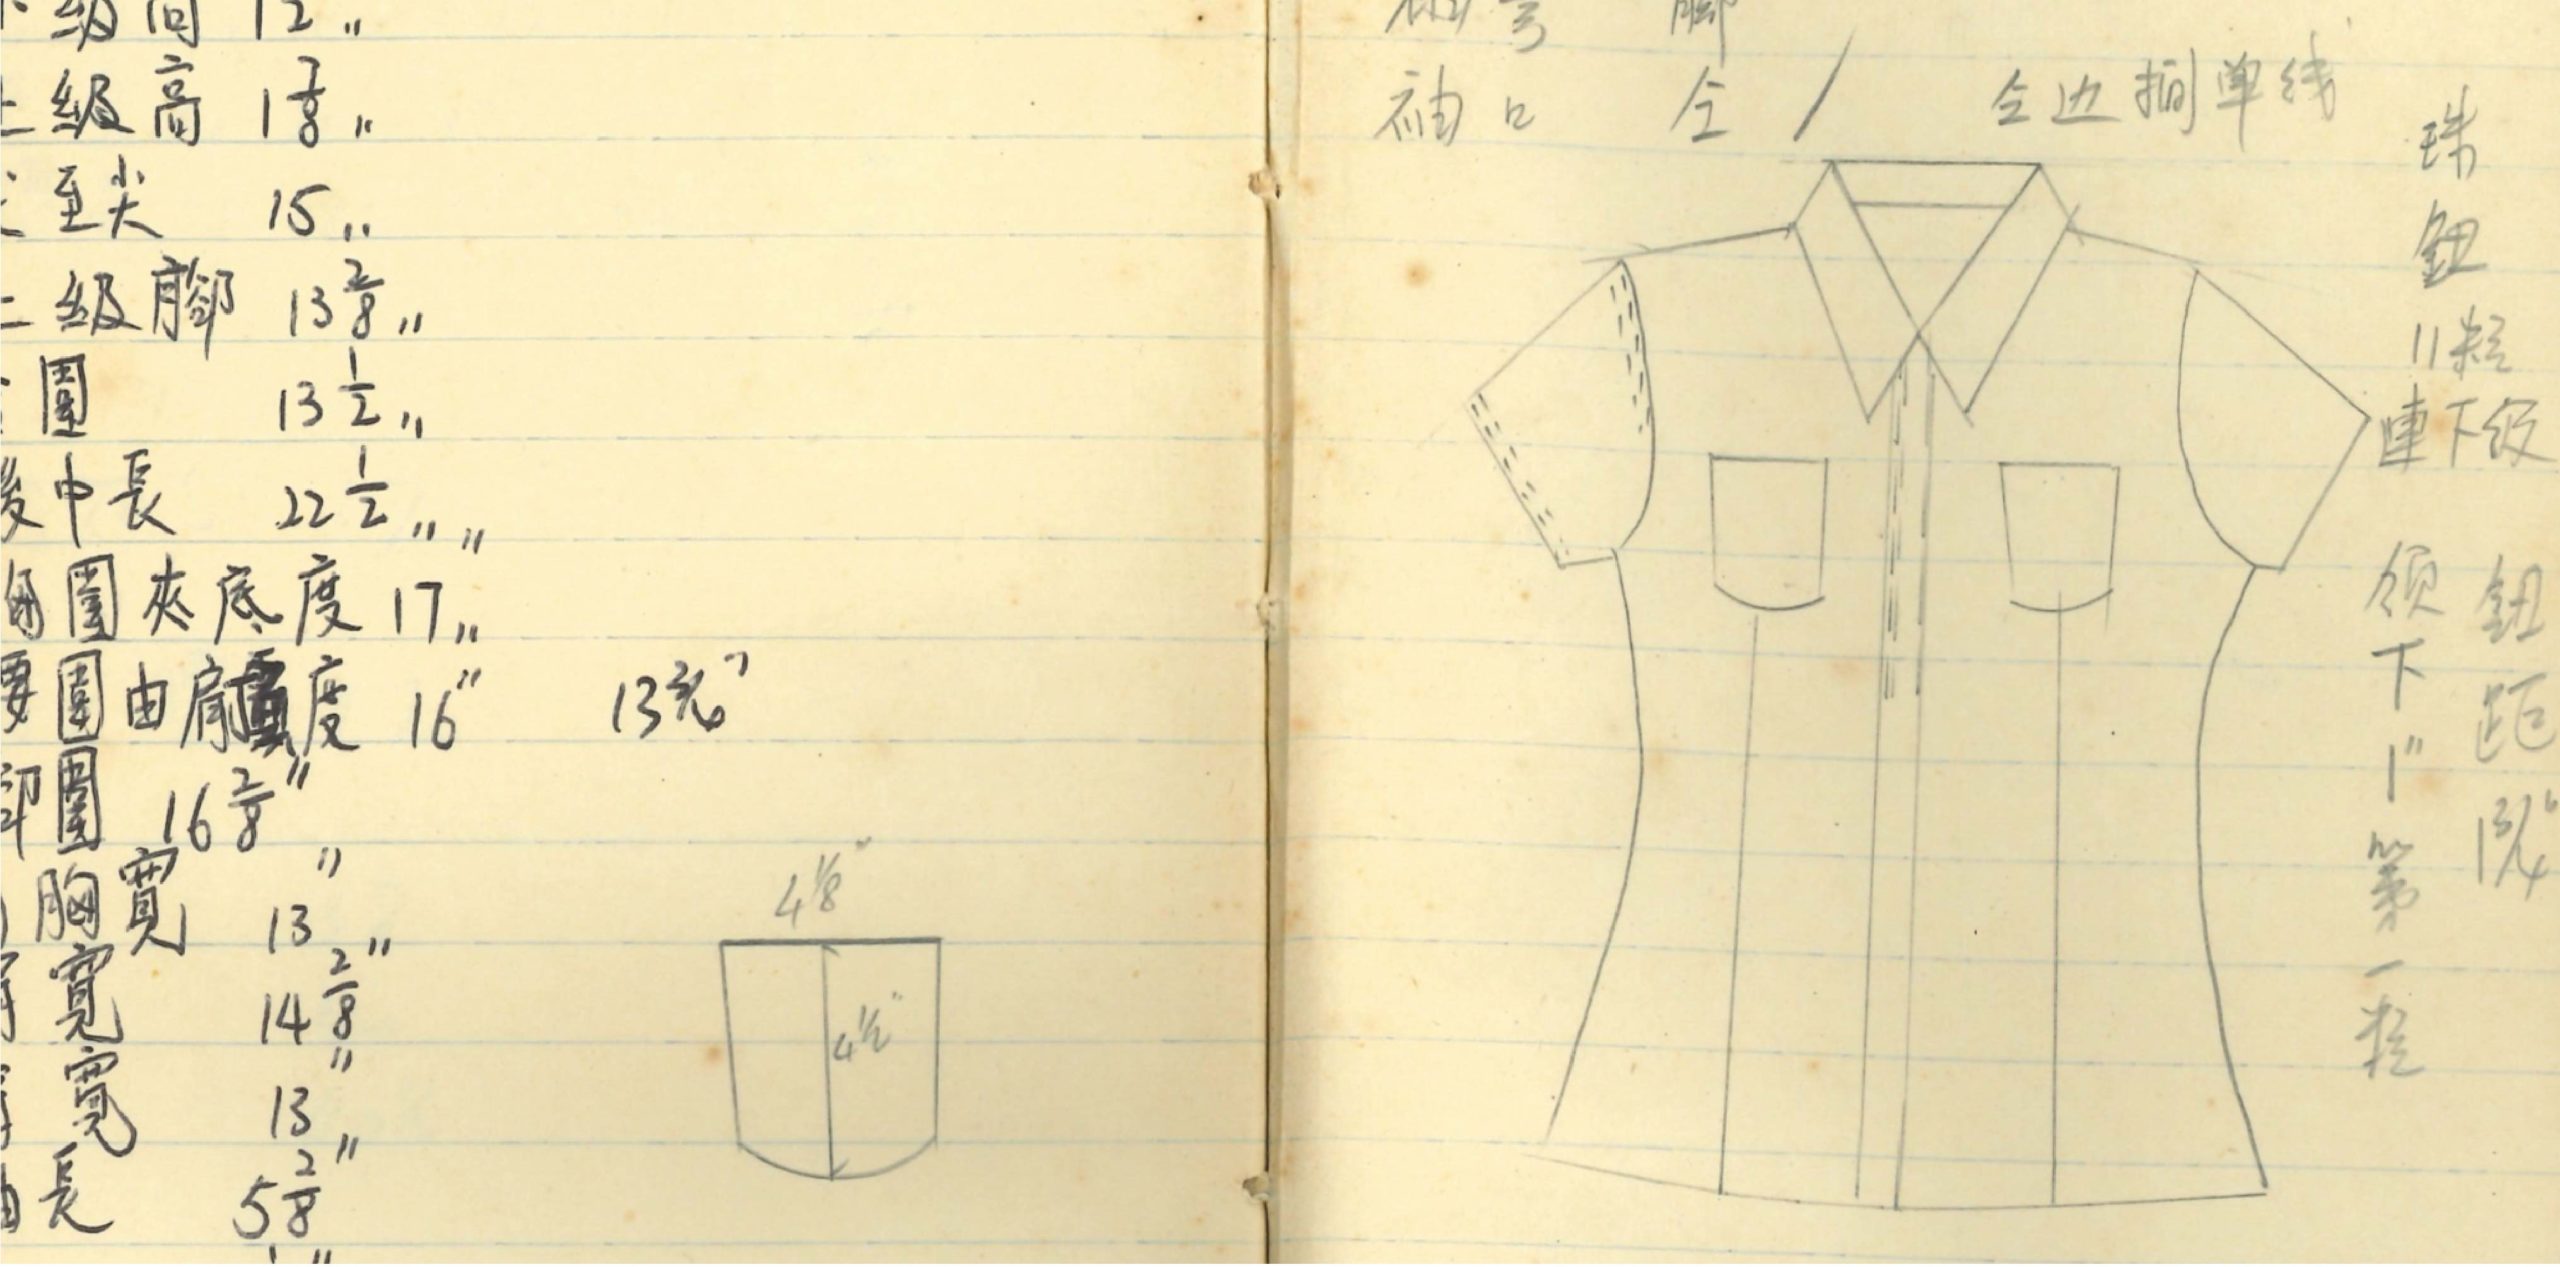 級高 12"
級高 1 7/8"
至尖 15"
級腳 13 2/8"
圍 13 1/2"
後中長 22 1/2"
胸圍夾底度 17"
腰圍由肩度 16" 13 3/4"
圍 16 2/8"
胸寬 13"
寬 14 2/8"
寬 13"
長 5 2/8"
4 1/8"
4 1/2"
腳
袖口 仝 /
仝边搁单线
珠鈕
11粒
連下级
鈕距 1 3/4"
领下 1" 第一粒